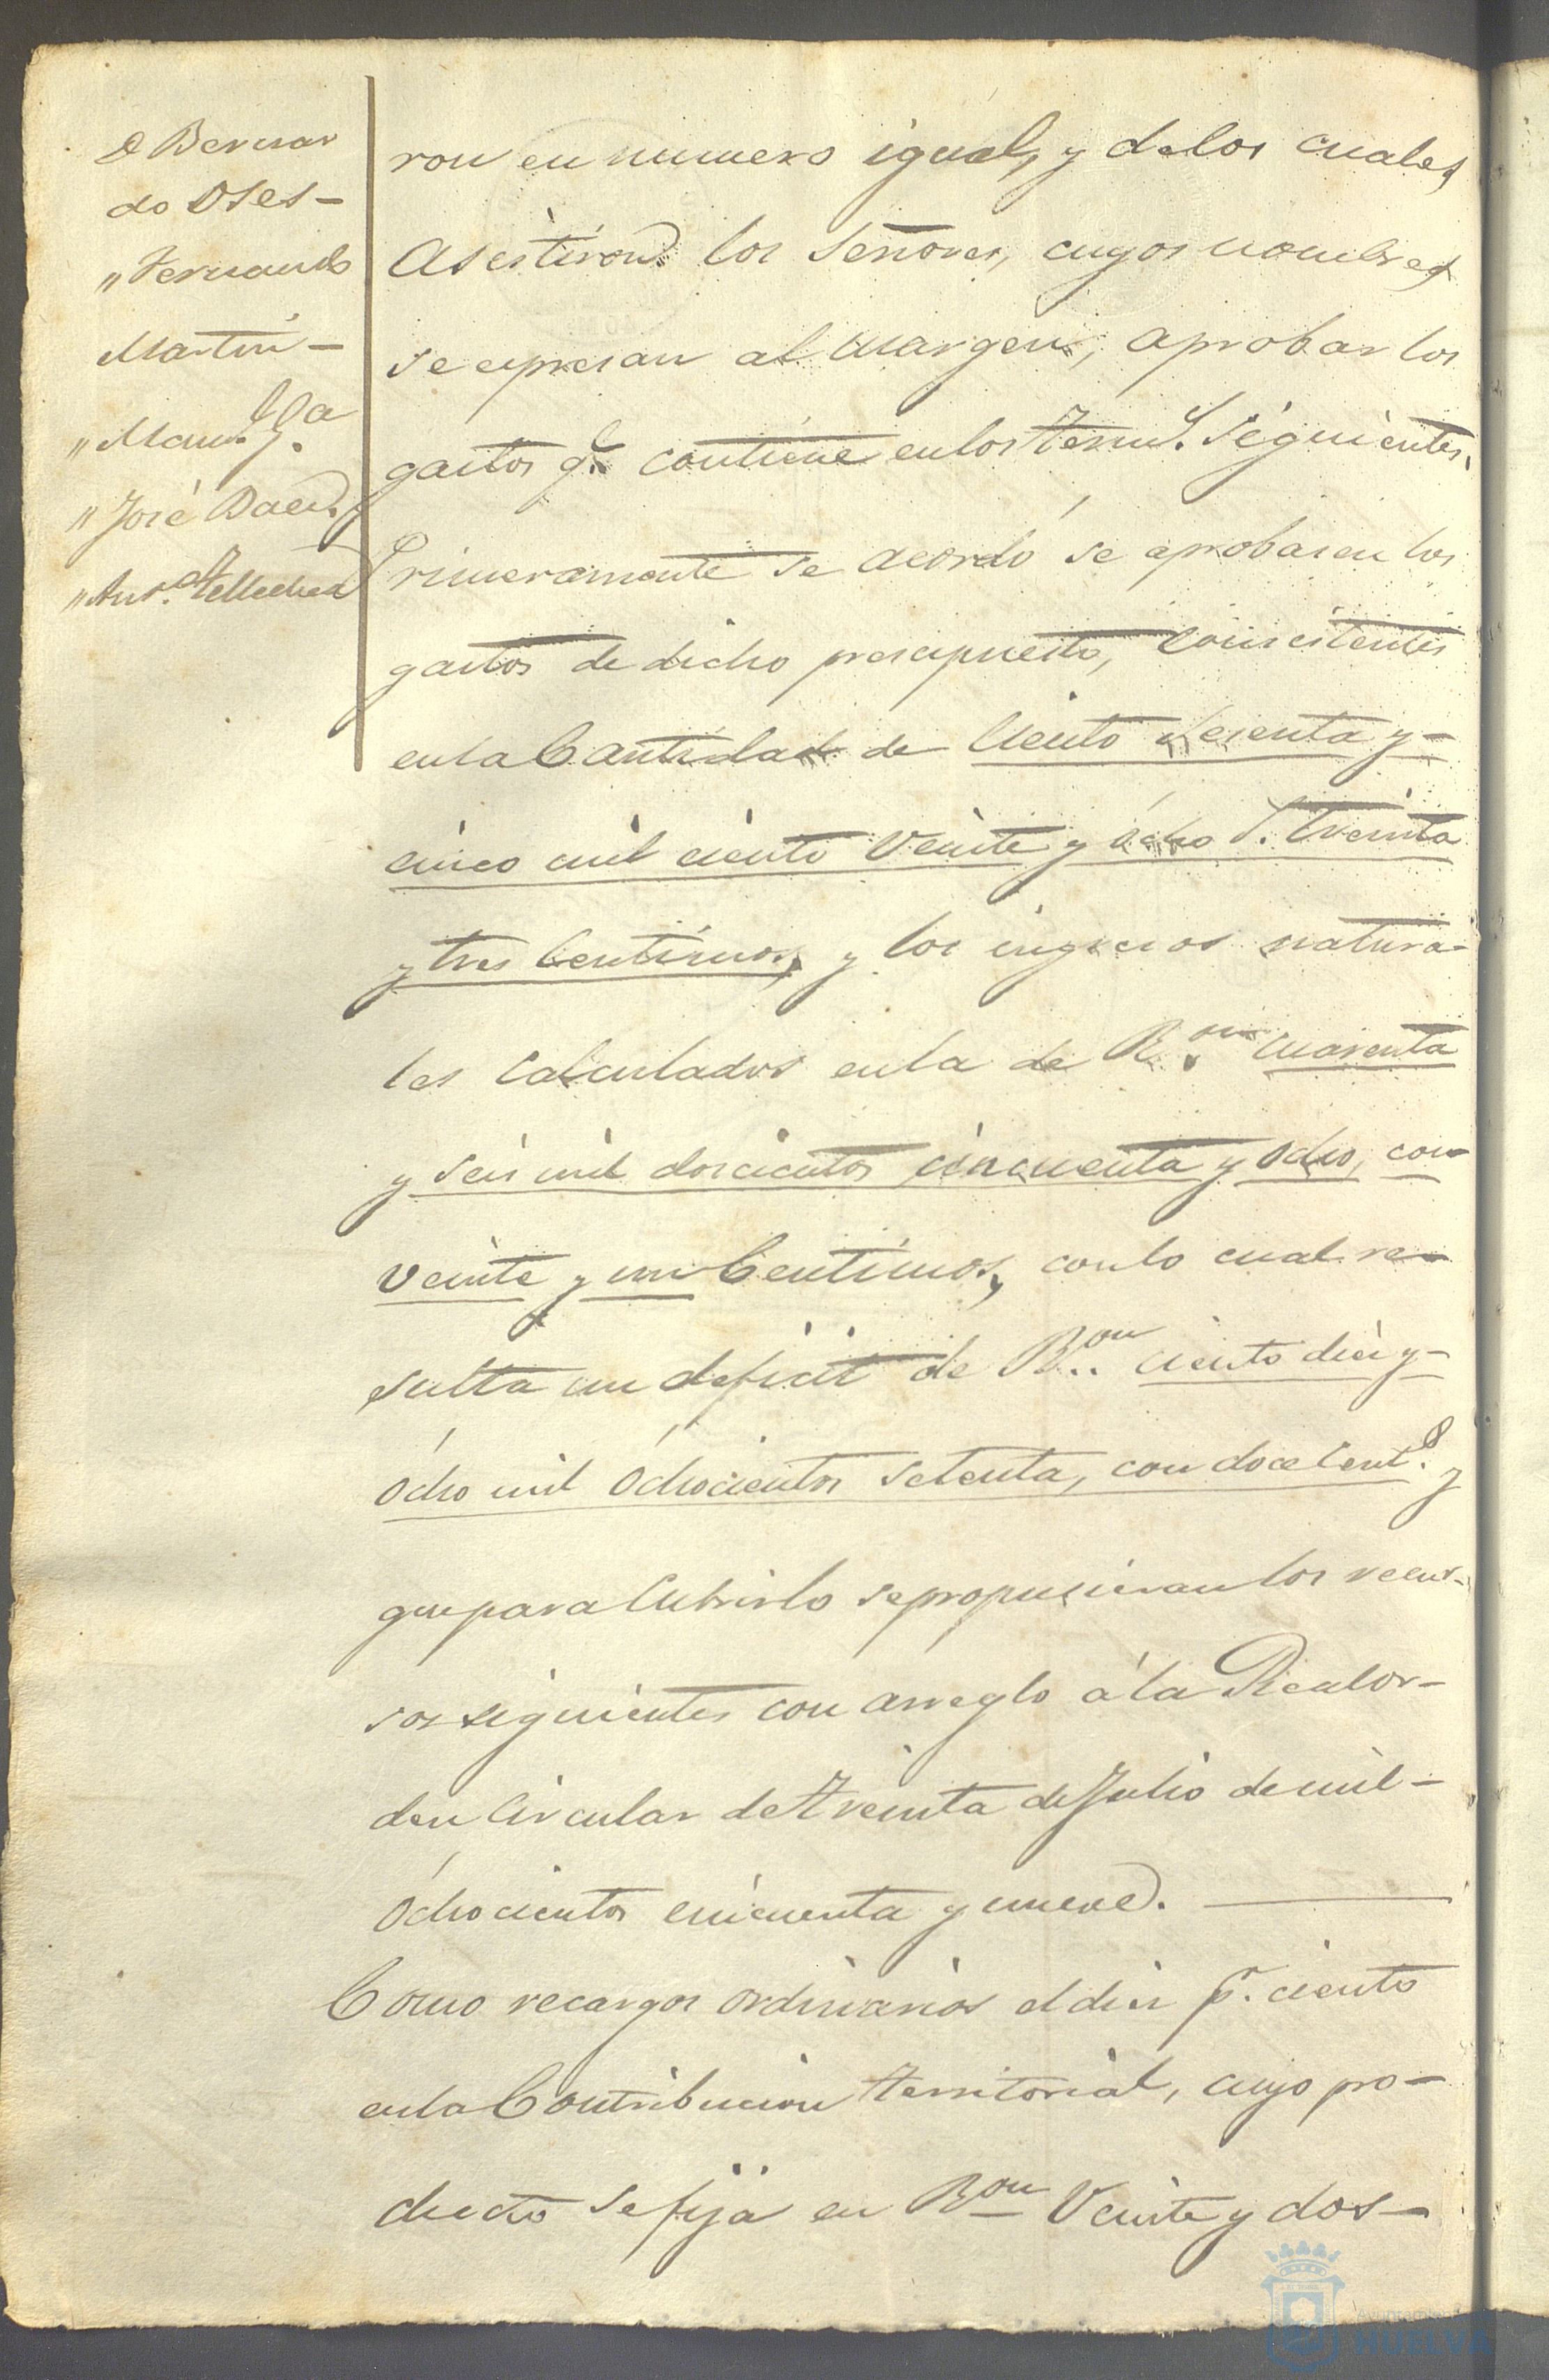 D Bernar
do Oses-
„Fernando
Martin-
„Man.l G.a
„José Daen.
„Ant.o Tellechea
ron en numero igual, y delos cuales
Asistiron los Señores, cuyos nombres
se expresan al margen, aprobar los
gastos q.e contiene enlos Termi.s Siguientes.
Primeramente se acordó se aprobasen los
gastos de dicho presupuesto, consistentes
enla Cantidad de Ciento sesenta y-
cinco mil ciento Veinte y ócho r.s treinta
y tres Centimos, y los ingresos natura-
les Calculados enla de R.on cuarenta
y seis mil doscientos cincuenta y ocho, con
veinte y un Centimos, conlo cual re-
sulta un deficit de R.on ciento diez y-
ócho mil óchocientos setenta, con doce Cent.s y
que para Cubrirlo se propusieran los recur-
sos siguientes con arreglo á la Realor-
den Circular de Treinta de Julio de mil-
óchocientos cincuenta y nueve.
Como recargos ordinarios el diez p.r ciento
enla Contribucion territorial, cuyo pro-
ducto se fija en R.on Veinte y dos-
HUELVA